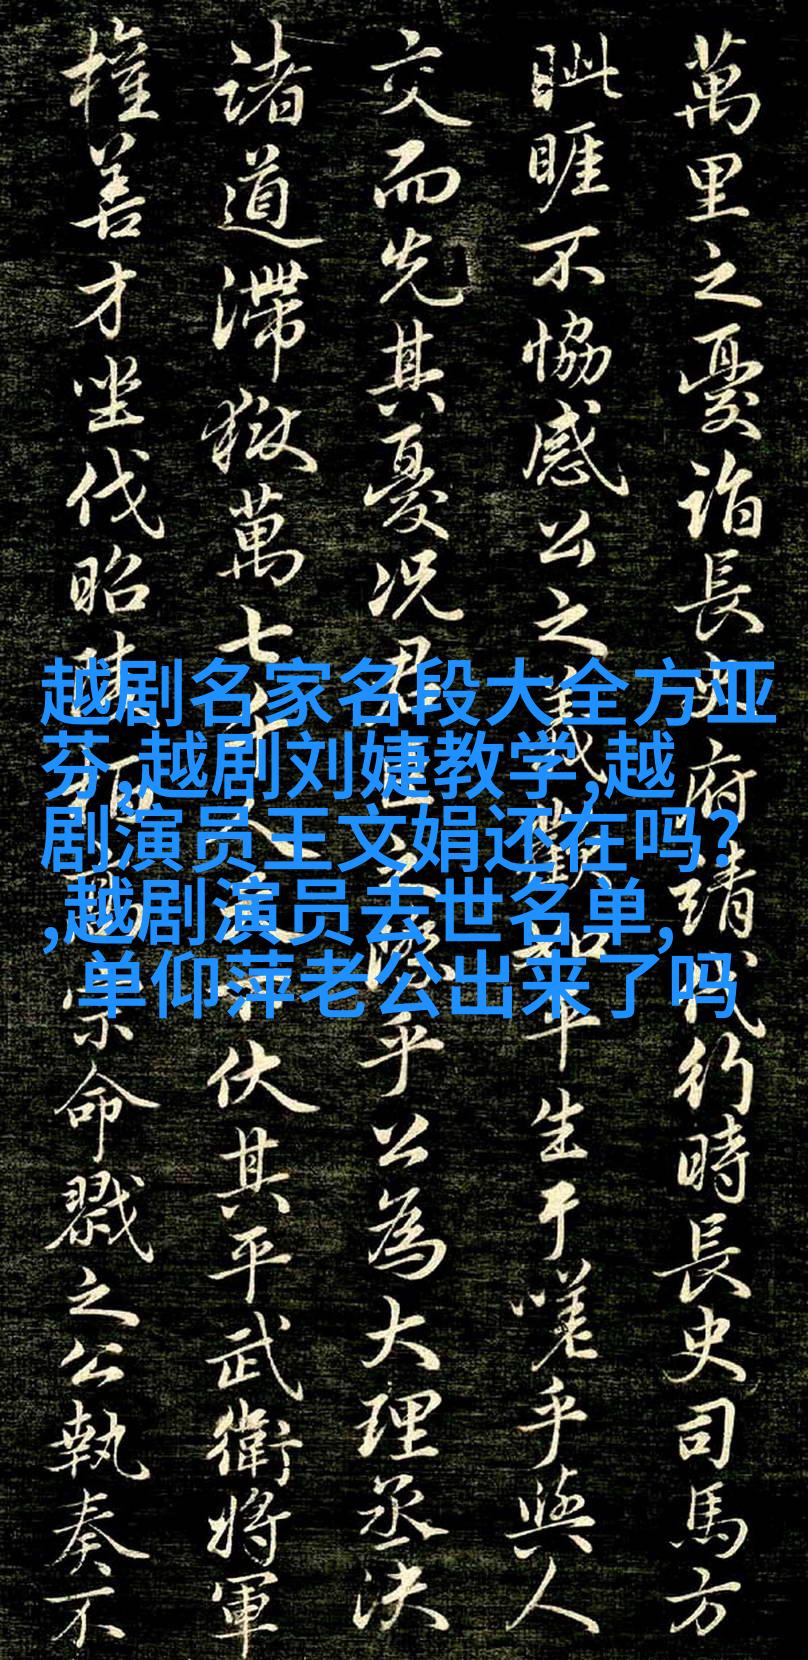 萬里之憂詣長史府請代行時長史司馬方
眦睚不協感公之義歡如平生于嗟乎與人
交而先其憂況君臣之際乎公為大理丞決
諸道滯獄萬七千人天下伏其平武衛將軍
權善才坐伐昭陵柏高宗命戮之公執奏不
越剧名家名段大全方亚
芬,越剧刘婕教学,越
剧演员王文娟还在吗?
,越剧演员去世名单,
单仰萍老公出来了吗